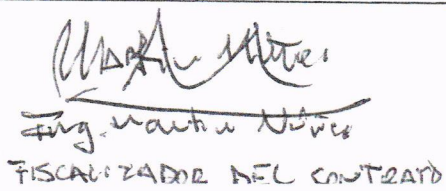 Martin Núñez
Ing. Martin Núñez
FISCALIZADOR DEL CONTRATO